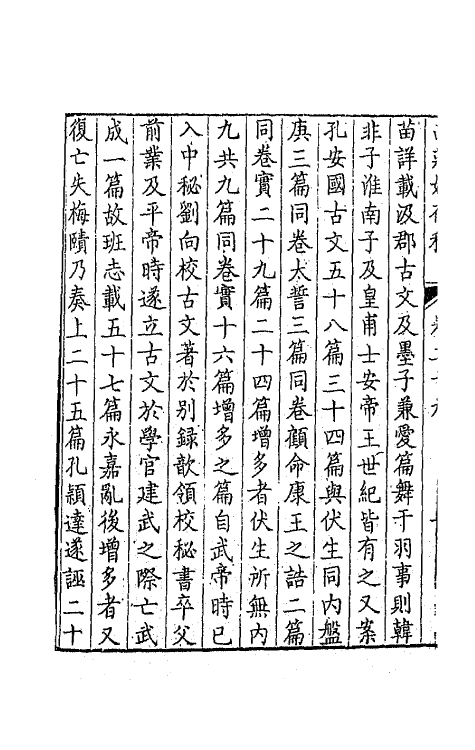 苗詳載汲郡古文及墨子兼愛篇舞干羽事則韓
非子淮南子及皇甫士安帝王世紀皆有之又案
孔安國古文五十八篇三十四篇與伏生同内盤
庚三篇同卷太誓三篇同卷顧命康王之誥二篇
同卷實二十九篇二十四篇增多者伏生所無内
九共九篇同卷實十六篇增多之篇自武帝時已
入中秘劉向校古文著於别録歆領校秘書卒父
前業及平帝時遂立古文於學官建武之際亡武
成一篇故班志載五十七篇永嘉亂後增多者又
復亡失梅賾乃奏上二十五篇孔穎達遂誣二十